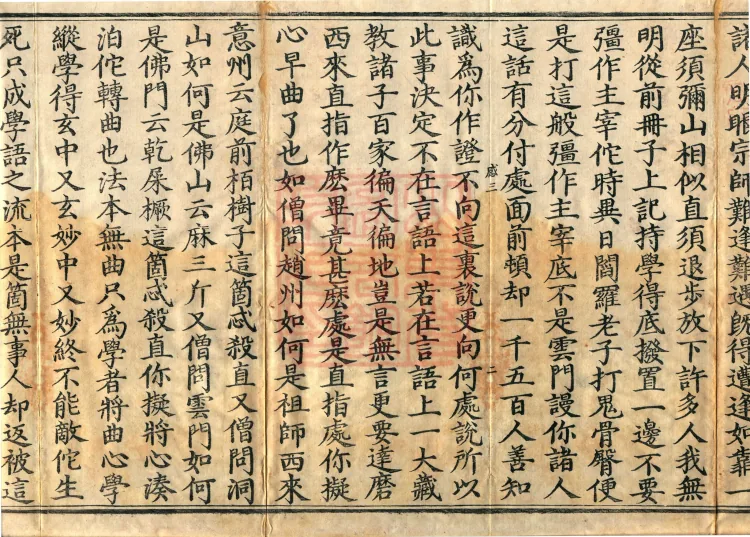 諸人明眼宗師難逢難遇既得遭逢如靠一
座須彌山相似直須退步放下許多人我無
明從前冊子上記持學得底撥置一邊不要
彊作主宰佗時異日閻羅老子打鬼骨臀便
是打這般彊作主宰底不是雲門謾你諸人
這話有分付處面前頓却一千五百人善知
三 二
識為你作證不向這裏說更向何處說所以
此事決定不在言語上若在言語上一大藏
教諸子百家徧天徧地豈是無言更要達磨
西來直指作麽畢竟甚麽處是直指處你擬
心早曲了也如僧問趙州如何是祖師西來
意州云庭前栢樹子這箇忒殺直又僧問洞
山如何是佛山云麻三斤又僧問雲門如何
是佛門云乾屎橛這箇忒殺直你擬將心湊
泊佗轉曲也法本無曲只為學者將曲心學
縱學得玄中又玄妙中又妙終不能敵佗生
死只成學語之流本是箇無事人却返被這